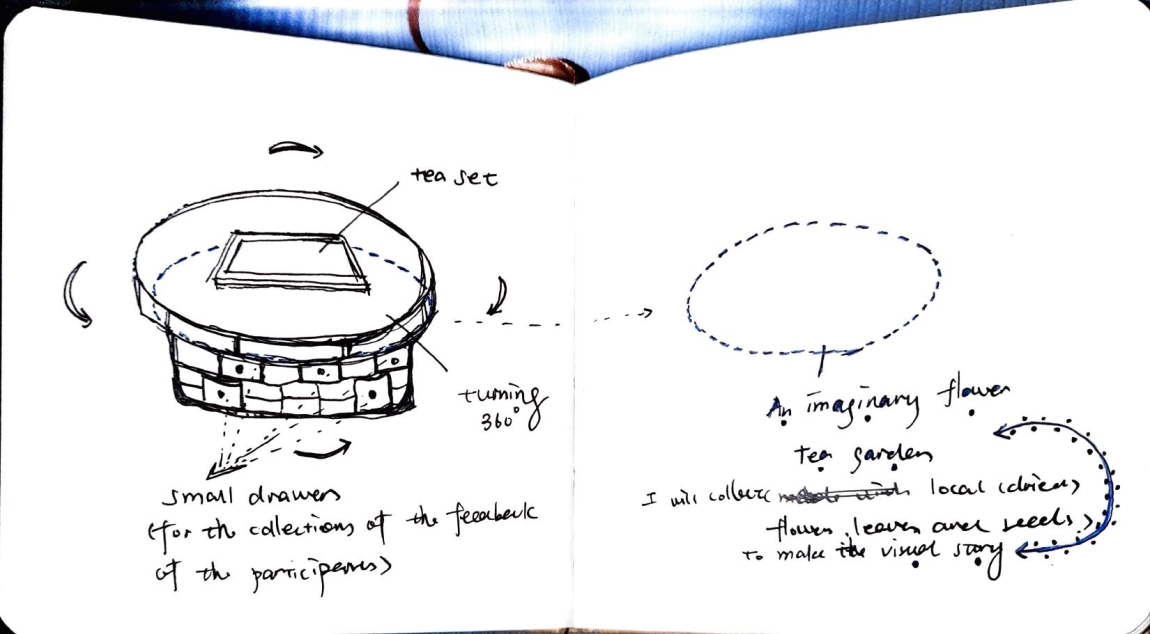 tea set
turning
360°
small drawers
(for the collections of the feedback
of the participants)
An imaginary flower
tea garden
I will collect local (dried)
flower, leaves and seeds)
to make the visual story